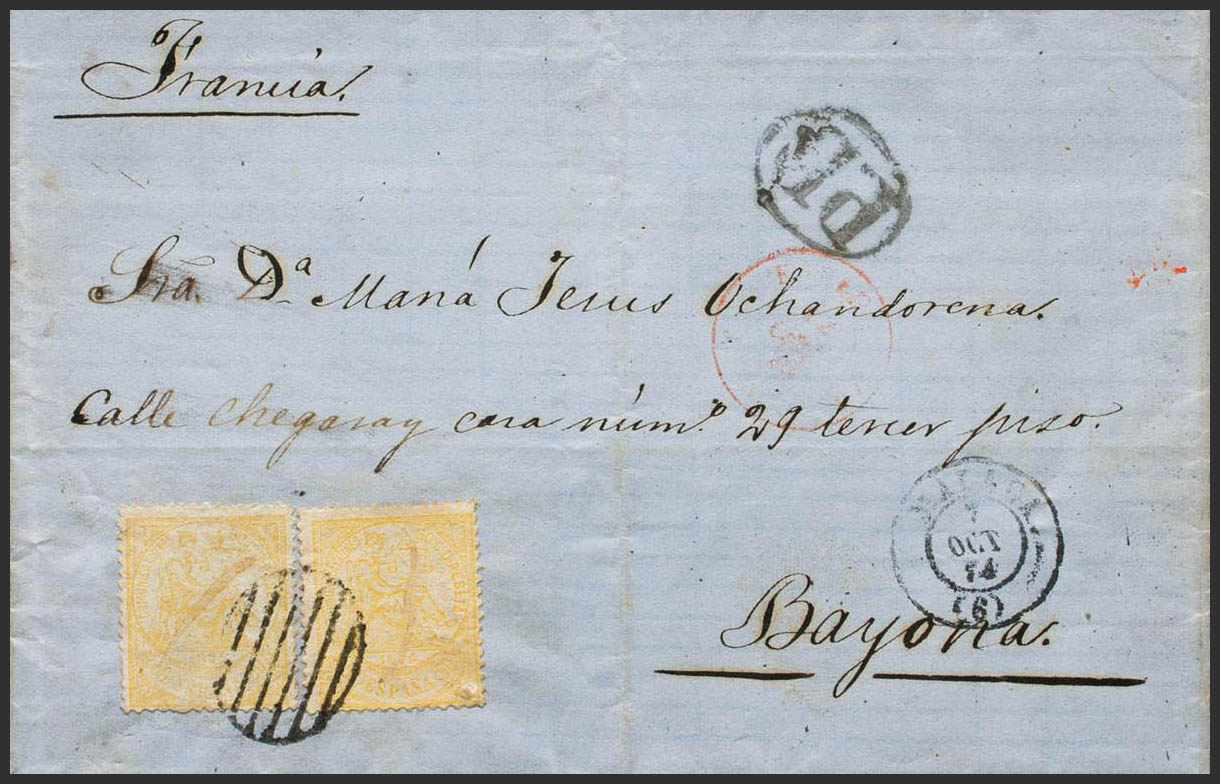 Francia.
PD
Sra. Dª María Jesus Ochandorena.
Calle chegaray casa númº 29 tercer piso.
7
OCT
74
(6)
Bayona.
ESPAÑA